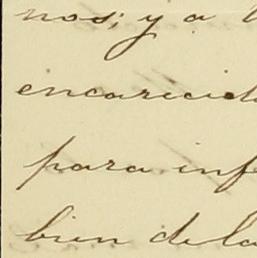 nos; y a
encarecid
para inf
bien de la